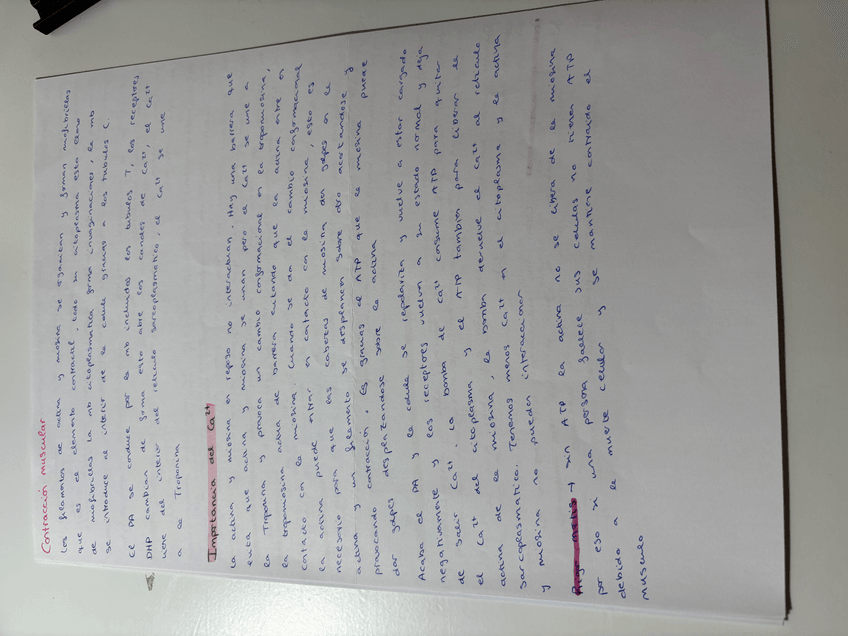 Contracción muscular
Los filamentos de actina y miosina se organizan y forman miofibrillas
que es el elemento contractil, todo su citoplasma esta lleno
de miofibrillas la mb citoplasmatica forma invaginaciones, la mb
se introduce al interior de la celula gracias a los tubulos T.
El PA se conduce por la mb incluidos los tubulos T, los receptores
DHP cambian de forma esto abre los canales de Ca2+, el Ca2+
viene del interior del reticulo sarcoplasmatico, el Ca2+ se une
a la Troponina
Importancia del Ca2+
La actina y miosina en reposo no interactuan. Hay una barrera que
evita que actina y miosina se unan pero el Ca2+ se une a
la Troponina y provoca un cambio conformacional en la tropomiosina,
la tropomiosina actua de barrera evitando que la actina entre en
contacto con la miosina. Cuando se da el cambio conformacional
la actina puede entrar en contacto con la miosina, esto es
necesario para que las cabezas de miosina den golpes en la
actina y un filamento se desplanza sobre otro acortandose y
provocando contracción. Es gracias al ATP que la miosina puede
dar golpes desplazandose sobre la actina
Acaba el PA y la celula se repolariza y vuelve a estar cargado
negativamente y los receptores vuelven a su estado normal y deja
de salir Ca2+. La bomba de Ca2+ consume ATP para quitar
el Ca2+ del citoplasma y el ATP tambien para liberar la
actina de la miosina, la bomba devuelve el Ca2+ al reticulo
sarcoplasmatico. Tenemos menos Ca2+ en el citoplasma y la actina
y miosina no pueden interaccionar
Rigor mortis → sin ATP la actina no se libera de la miosina
por eso si una persona fallece sus celulas no tienen ATP
debido a la muerte celular y se mantiene contraido el
musculo